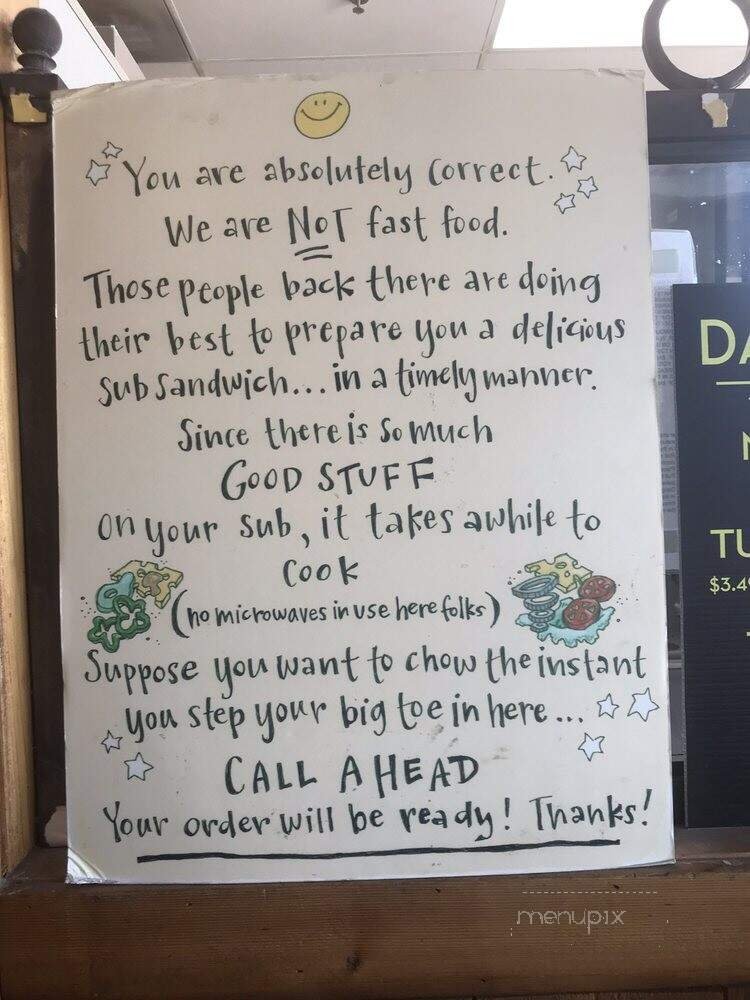 You are absolutely correct.
We are NOT fast food.
Those people back there are doing
their best to prepare you a delicious
sub sandwich... in a timely manner.
Since there is so much
GOOD STUFF
on your sub, it takes awhile to
cook
(no microwaves in use here folks)
Suppose you want to chow the instant
you step your big toe in here...
CALL AHEAD
Your order will be ready! Thanks!
DA
TU
$3.49
menupix